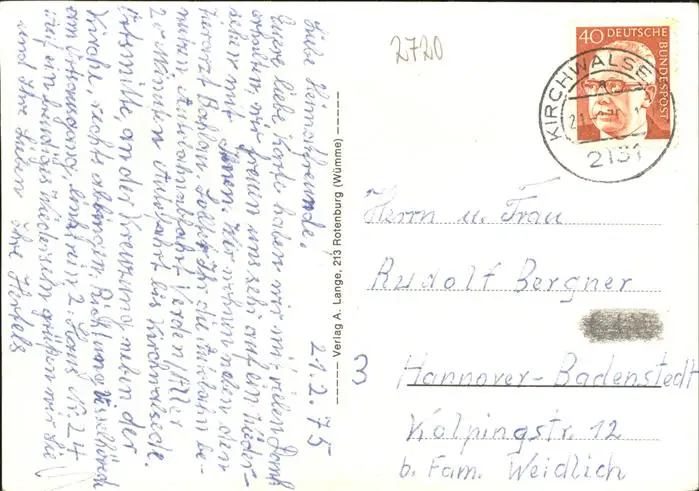 Liebe Heimatfreunde,
21.2.75
Eure liebe Karte haben wir mit vielen Dank
erhalten, wir freuen uns sehr auf ein Wieder-
sehen mit Ihnen. Wir wohnen neben den
Tierarzt Sollten Sie die Autobahn be-
nutzen Autobahnabfahrt Verden/Aller
20 Minuten Autofahrt bis Kirchwalsede.
Ortsmitte, an der Kreuzung neben der
Kirche, rechts abbiegen Richtung
am Ortsausgang links in 2. Haus Nr. 24
Auf ein baldiges Wiedersehn grüßen wir Sie
und Ihre Lieben Ihre
Verlag A. Lange, 213 Rotenburg (Wümme)
2720
40 DEUTSCHE BUNDESPOST
KIRCHWALSE
2131
Herrn u. Frau
Rudolf Bergner
3 Hannover-Badenstedt
Kolpingstr. 12
b. Fam. Weidlich